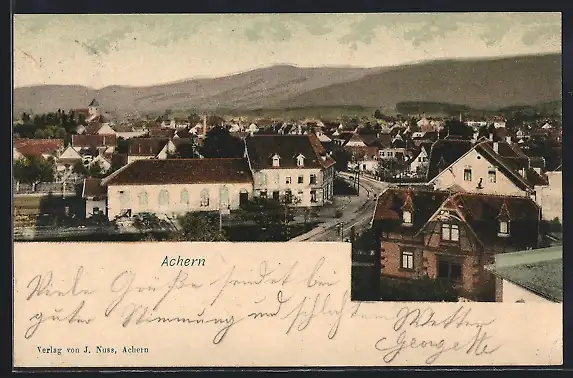 Achern
Viele Grüße sendet bei
guter Stimmung und schlechtem Wetter
Georgette
Verlag von J. Nuss, Achern